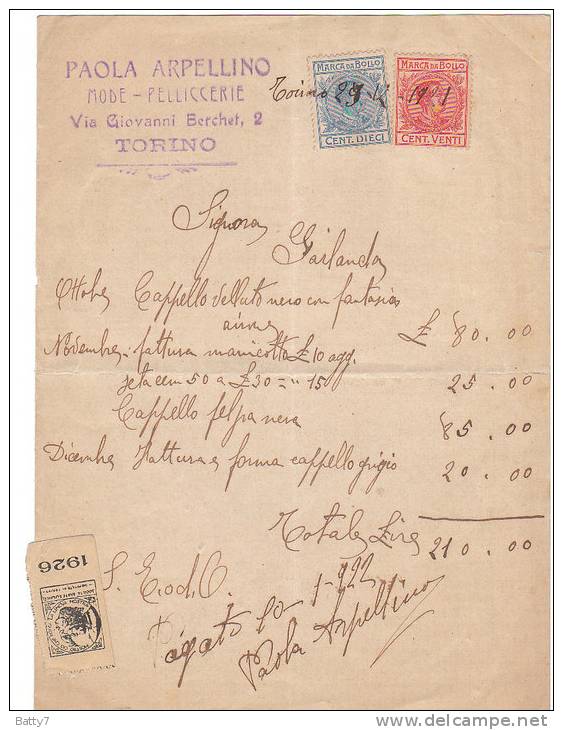 PAOLA ARPELLINO
MODE - PELLICCERIE
Via Giovanni Berchet, 2
TORINO
MARCA DA BOLLO
CENT. DIECI
MARCA DA BOLLO
CENT. VENTI
Torino 29 - 1921
Signora
Garlanda
Ottobre Cappello velluto nero con fantasia
£ 80.00
Novembre fattura manicotto £ 10 agg.
seta cem 50 a £ 30 = " 15 25.00
Cappello felpa nera 85.00
Dicembre Fattura e forma cappello grigio 20.00
Totale Lire 210.00
S. E. o d. O.
Pagato 1-922
Paola Arpellino
1926
Batty7
www.delcampe.net